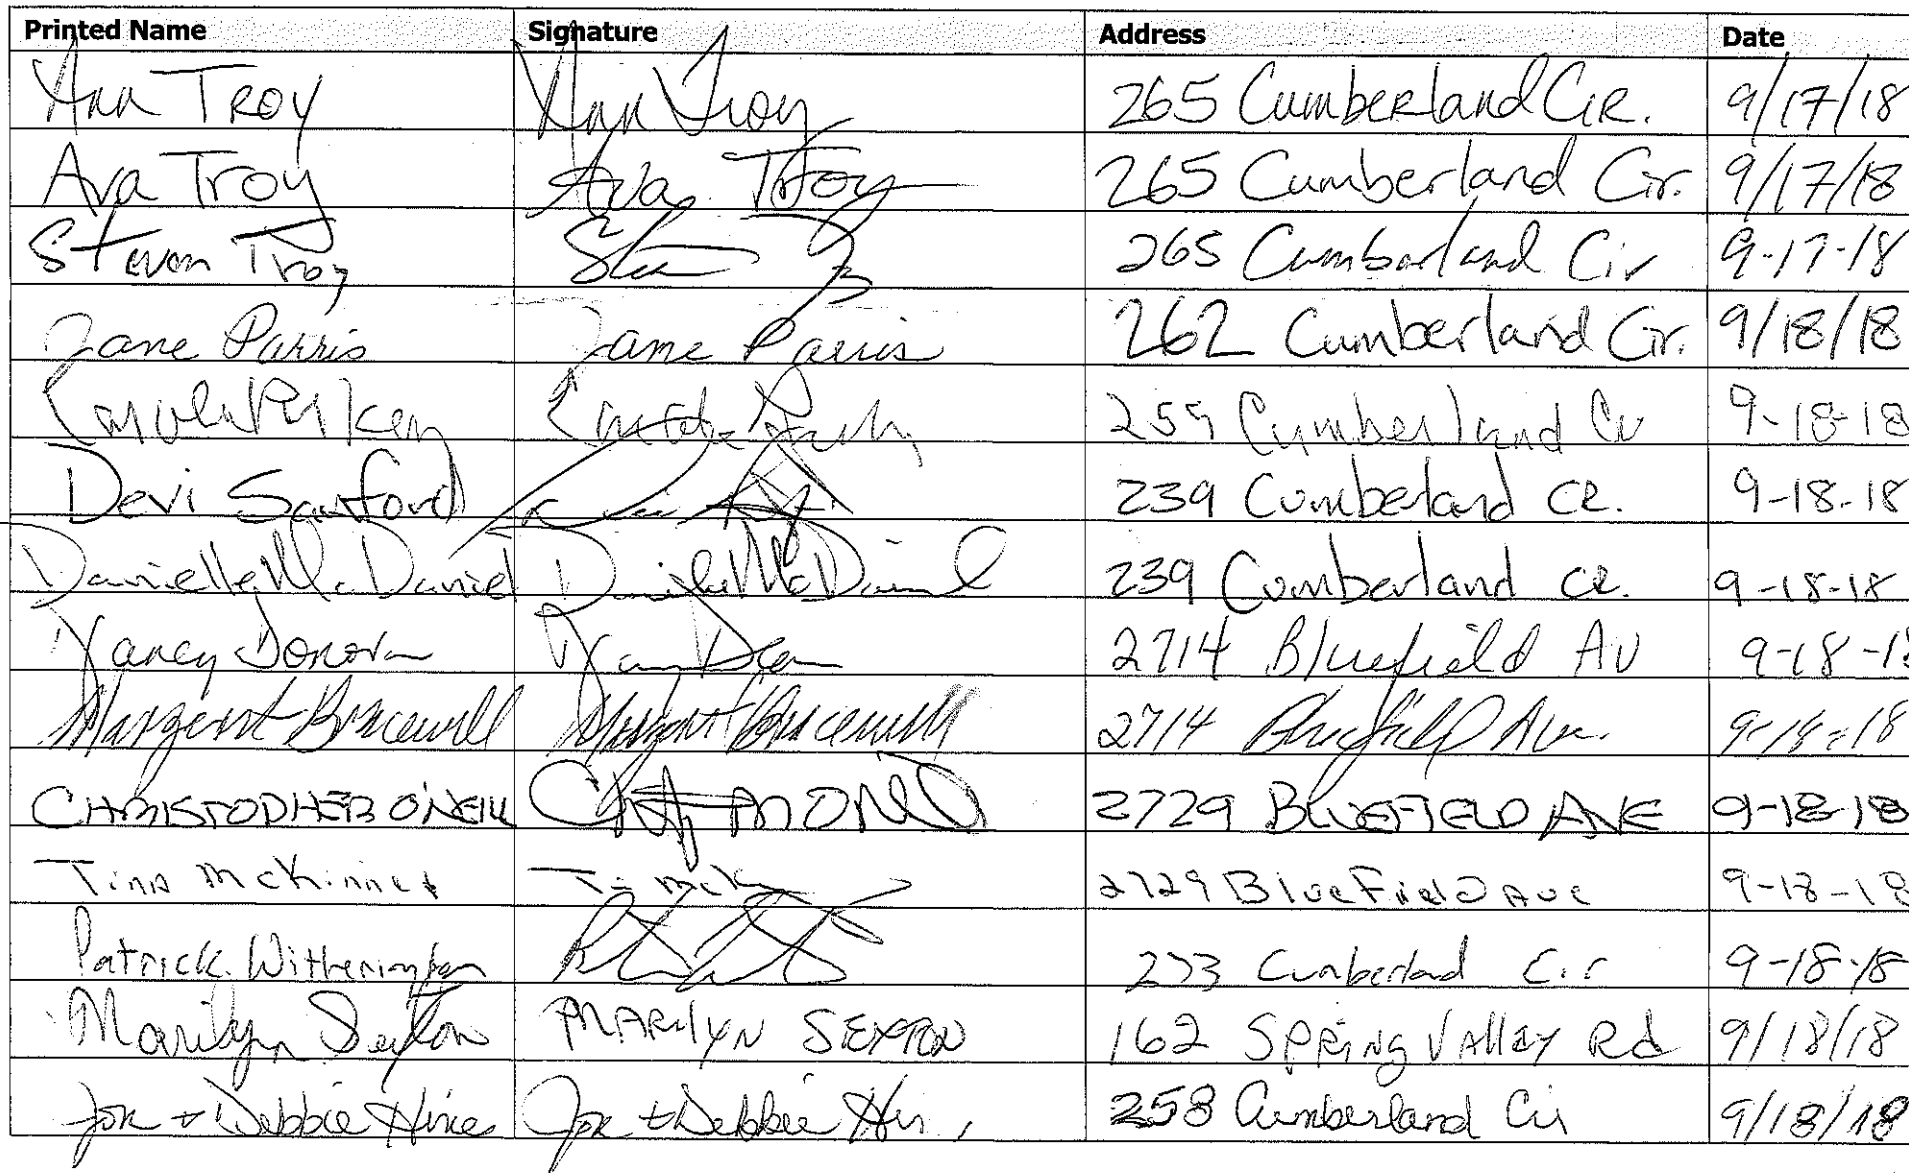 Printed Name Signature Address Date
Ann Troy Ann Troy 265 Cumberland Cir. 9/17/18
Ava Troy Ava Troy 265 Cumberland Cir. 9/17/18
Steven Troy 265 Cumberland Cir 9-17-18
Jane Parris Jane Parris 262 Cumberland Cir. 9/18/18
Carole 259 Cumberland Cir 9-18-18
Devi Sanford 239 Cumberland CR. 9-18-18
Danielle McDaniel Danielle McDaniel 239 Cumberland CR. 9-18-18
Nancy Donovan 2714 Bluefield Av 9-18-18
Margaret Bracewell Margaret Bracewell 2714 Bluefield Ave. 9-18-18
CHRISTOPHER ONEILL 2729 BLUEFIELD AVE 9-18-18
Tina McKinney 2729 BlueField Ave 9-18-18
Patrick Witherington 233 Cumberland Cir 9-18-18
Marilyn Sexton MARILYN SEXTON 162 SPRING VAlley Rd 9/18/18
Jon + Debbie Hines Jon + Debbie 258 Cumberland Cir 9/18/18